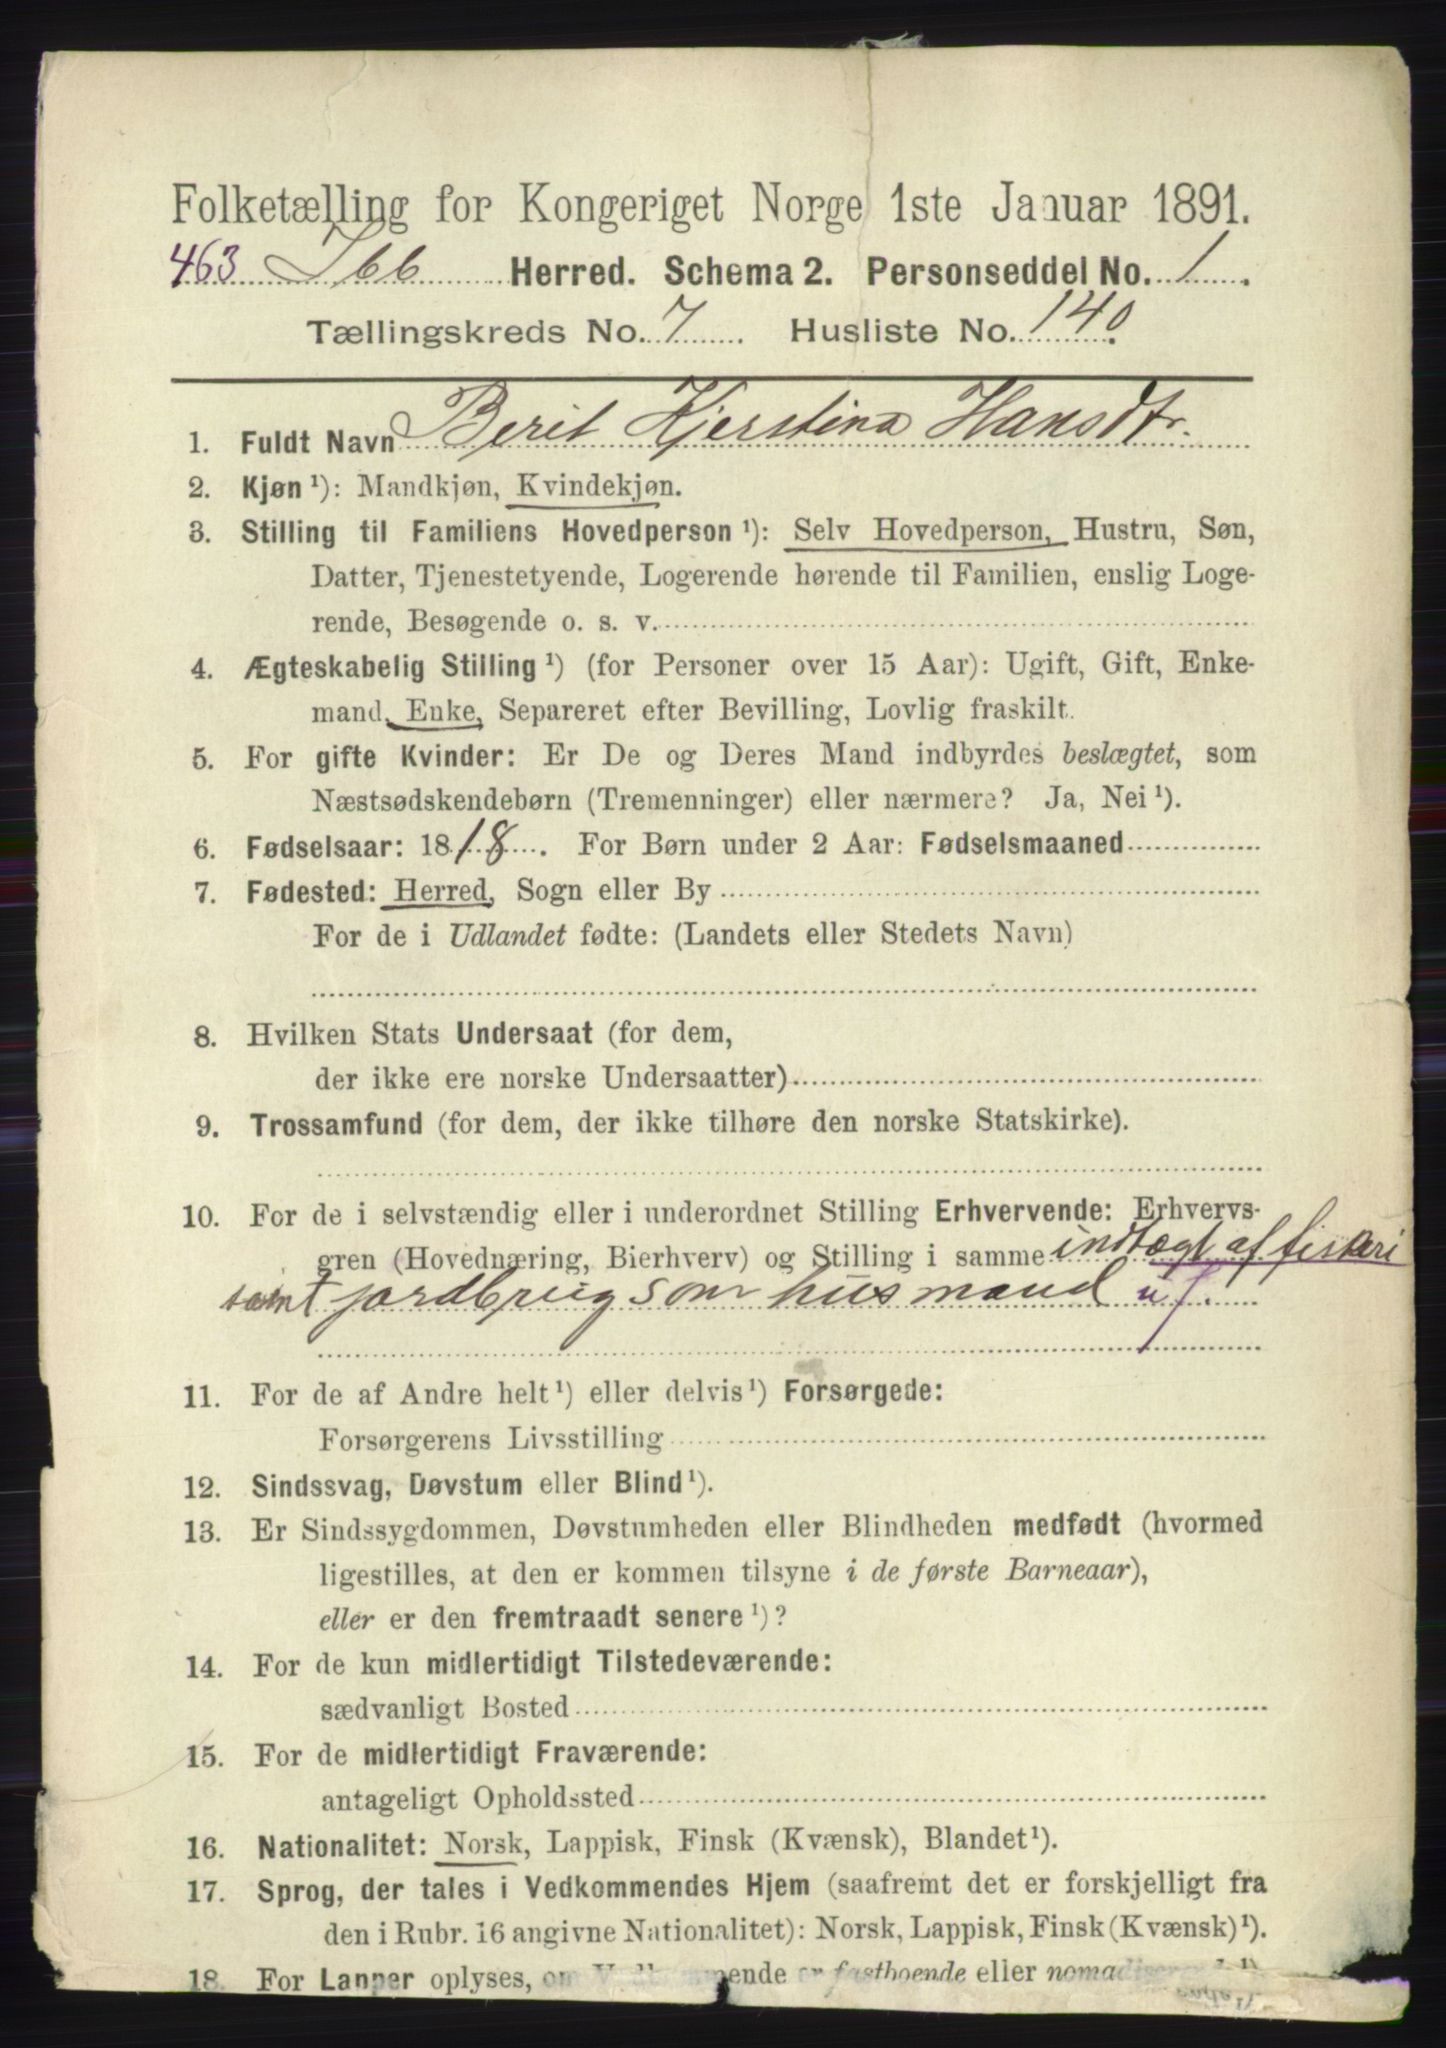 Folketælling for Kongeriget Norge 1ste Januar 1891.
463 Ibb Herred. Schema 2. Personseddel No. 1.
Tællingskreds No. 7. Husliste No. 140.
1. Fuldt Navn Berit Kjerstina Hansdtr.
2. Kjøn ¹): Mandkjøn, Kvindekjøn.
3. Stilling til Familiens Hovedperson ¹): Selv Hovedperson, Hustru, Søn,
Datter, Tjenestetyende, Logerende hørende til Familien, enslig Loge-
rende, Besøgende o. s. v.
4. Ægteskabelig Stilling ¹) (for Personer over 15 Aar): Ugift, Gift, Enke-
mand, Enke, Separeret efter Bevilling, Lovlig fraskilt.
5. For gifte Kvinder: Er De og Deres Mand indbyrdes beslægtet, som
Næstsødskendebørn (Tremenninger) eller nærmere? Ja, Nei ¹).
6. Fødselsaar: 1818. For Børn under 2 Aar: Fødselsmaaned
7. Fødested: Herred, Sogn eller By
For de i Udlandet fødte: (Landets eller Stedets Navn)
8. Hvilken Stats Undersaat (for dem,
der ikke ere norske Undersaatter)
9. Trossamfund (for dem, der ikke tilhøre den norske Statskirke).
10. For de i selvstændig eller i underordnet Stilling Erhvervende: Erhvervs-
gren (Hovednæring, Bierhverv) og Stilling i samme indtægt af fiskeri
samt jordbrug som husmand
11. For de af Andre helt ¹) eller delvis ¹) Forsørgede:
Forsørgerens Livsstilling
12. Sindssvag, Døvstum eller Blind ¹).
13. Er Sindssygdommen, Døvstumheden eller Blindheden medfødt (hvormed
ligestilles, at den er kommen tilsyne i de første Barneaar),
eller er den fremtraadt senere ¹)?
14. For de kun midlertidigt Tilstedeværende:
sædvanligt Bosted
15. For de midlertidigt Fraværende:
antageligt Opholdssted
16. Nationalitet: Norsk, Lappisk, Finsk (Kvænsk), Blandet ¹).
17. Sprog, der tales i Vedkommendes Hjem (saafremt det er forskjelligt fra
den i Rubr. 16 angivne Nationalitet): Norsk, Lappisk, Finsk (Kvænsk) ¹).
18. For Lapper oplyses, om er fastboende eller